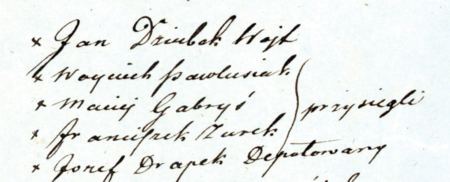 × Jan Dziubek Wojt
× Woyciech Pawlusiak
× Maciej Gabryś
× Franciszek Zurek } przysiegli
× Jozef Drapek Deputowany